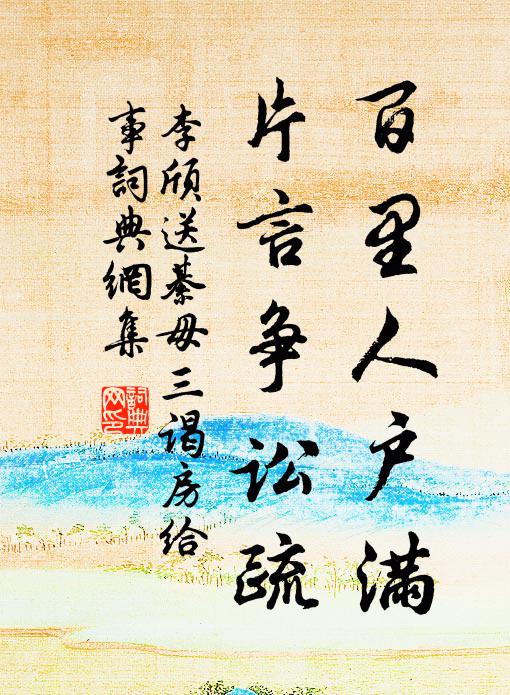 百里人户满
片言争讼疏
李颀送綦毋三谒房给
事詞典網集
詞典网印